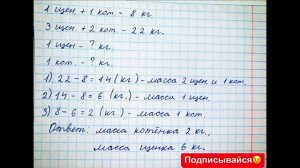 1 щен + 1 кот - 8 кг.
3 щен + 2 кот - 22 кг.
1 щен - ? кг.
1 кот - ? кг.
1) 22 - 8 = 14 (кг) - масса 2 щен и 1 кот.
2) 14 - 8 = 6 (кг.) - масса 1 щен.
3) 8 - 6 = 2 (кг) - масса 1 кот.
Ответ: масса котёнка 2 кг.,
масса щенка 6 кг.
Подписывайся